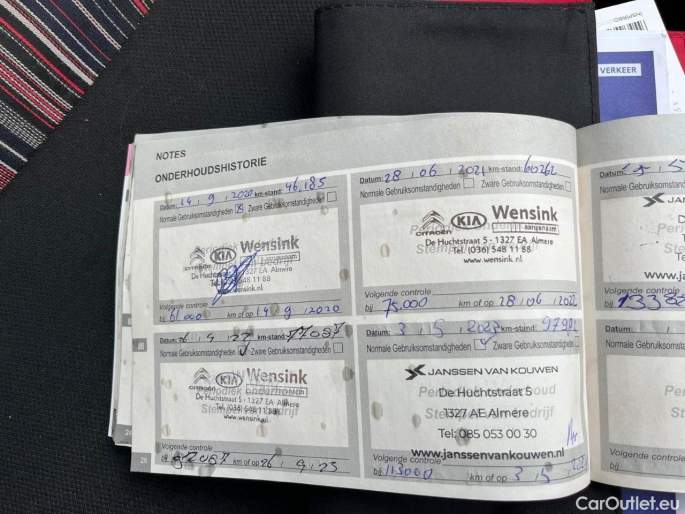 VERKEER
NOTES
ONDERHOUDSHISTORIE
Datum: 14 , 9 , 2020 km-stand: 46,185
Normale Gebruiksomstandigheden Zware Gebruiksomstandigheden
CITROËN KIA Wensink
aangenaam
De Huchtstraat 5 - 1327 EA Almere
Tel. (036) 548 11 88
www.wensink.nl
Volgende controle
bij 61000 km of op 14 , 9 , 2020
Datum: 28 , 06 , 2021 km-stand: 60262
Normale Gebruiksomstandigheden Zware Gebruiksomstandigheden
CITROËN KIA Wensink
aangenaam
De Huchtstraat 5 - 1327 EA Almere
Tel. (036) 548 11 88
www.wensink.nl
Volgende controle
bij 75.000 km of op 28 , 06 , 2022
JAN
www.ja
Volgende
bij
Datum: 26 , 4 , 22 km-stand:
Normale Gebruiksomstandigheden Zware Gebruiksomstandigheden
CITROËN KIA Wensink
Periodiek onderhoud
De Huchtstraat 5 - 1327 EA Almere
Stempel bedrijf
Tel. (036) 548 11 88
www.wensink.nl
Volgende controle
bij 92087 km of op 26 , 4 , 23
Datum: 3 , 5 , 2023 km-stand:
Normale Gebruiksomstandigheden Zware Gebruiksomstandigheden
JANSSEN VAN KOUWEN
De Huchtstraat 5
1327 AE Almere
Tel: 085 053 00 30
www.janssenvankouwen.nl
Volgende controle
bij 113000 km of op 3 , 5
Datum:
Normale
Volgende
bij
CarOutlet.eu